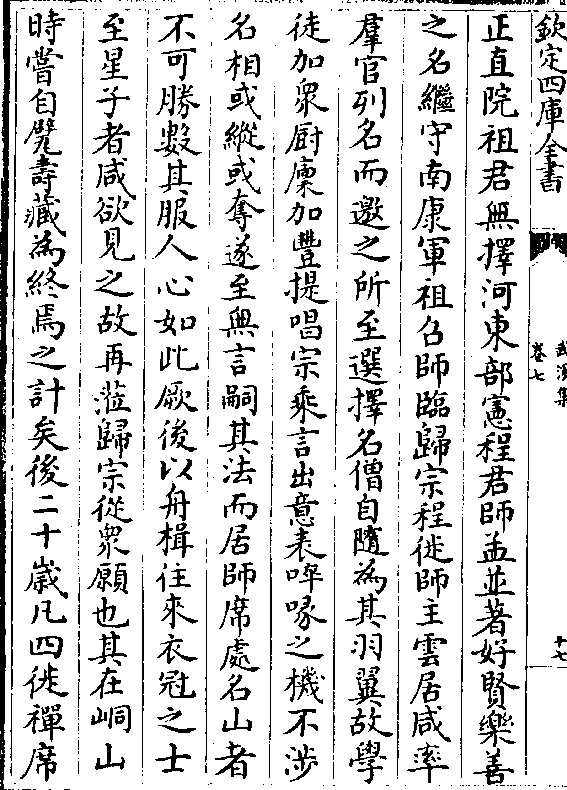 欽定四庫全書
武溪集
卷七
十七
正直院祖君無擇河東部憲程君師孟並著好賢樂善
之名繼守南康軍祖召師臨歸宗程徙師主雲居咸率
羣官列名而邀之所至選擇名僧自隨為其羽翼故學
徒加衆厨廩加豐提唱宗乘言出意表啐啄之機不涉
名相或縱或奪遂至無言嗣其法而居師席處名山者
不可勝數其服人心如此厥後以舟楫往來衣冠之士
至星子者咸欲見之故再蒞歸宗從衆願也其在峒山
時嘗自甓壽藏為終焉之計矣後二十歲凡四徙禪席